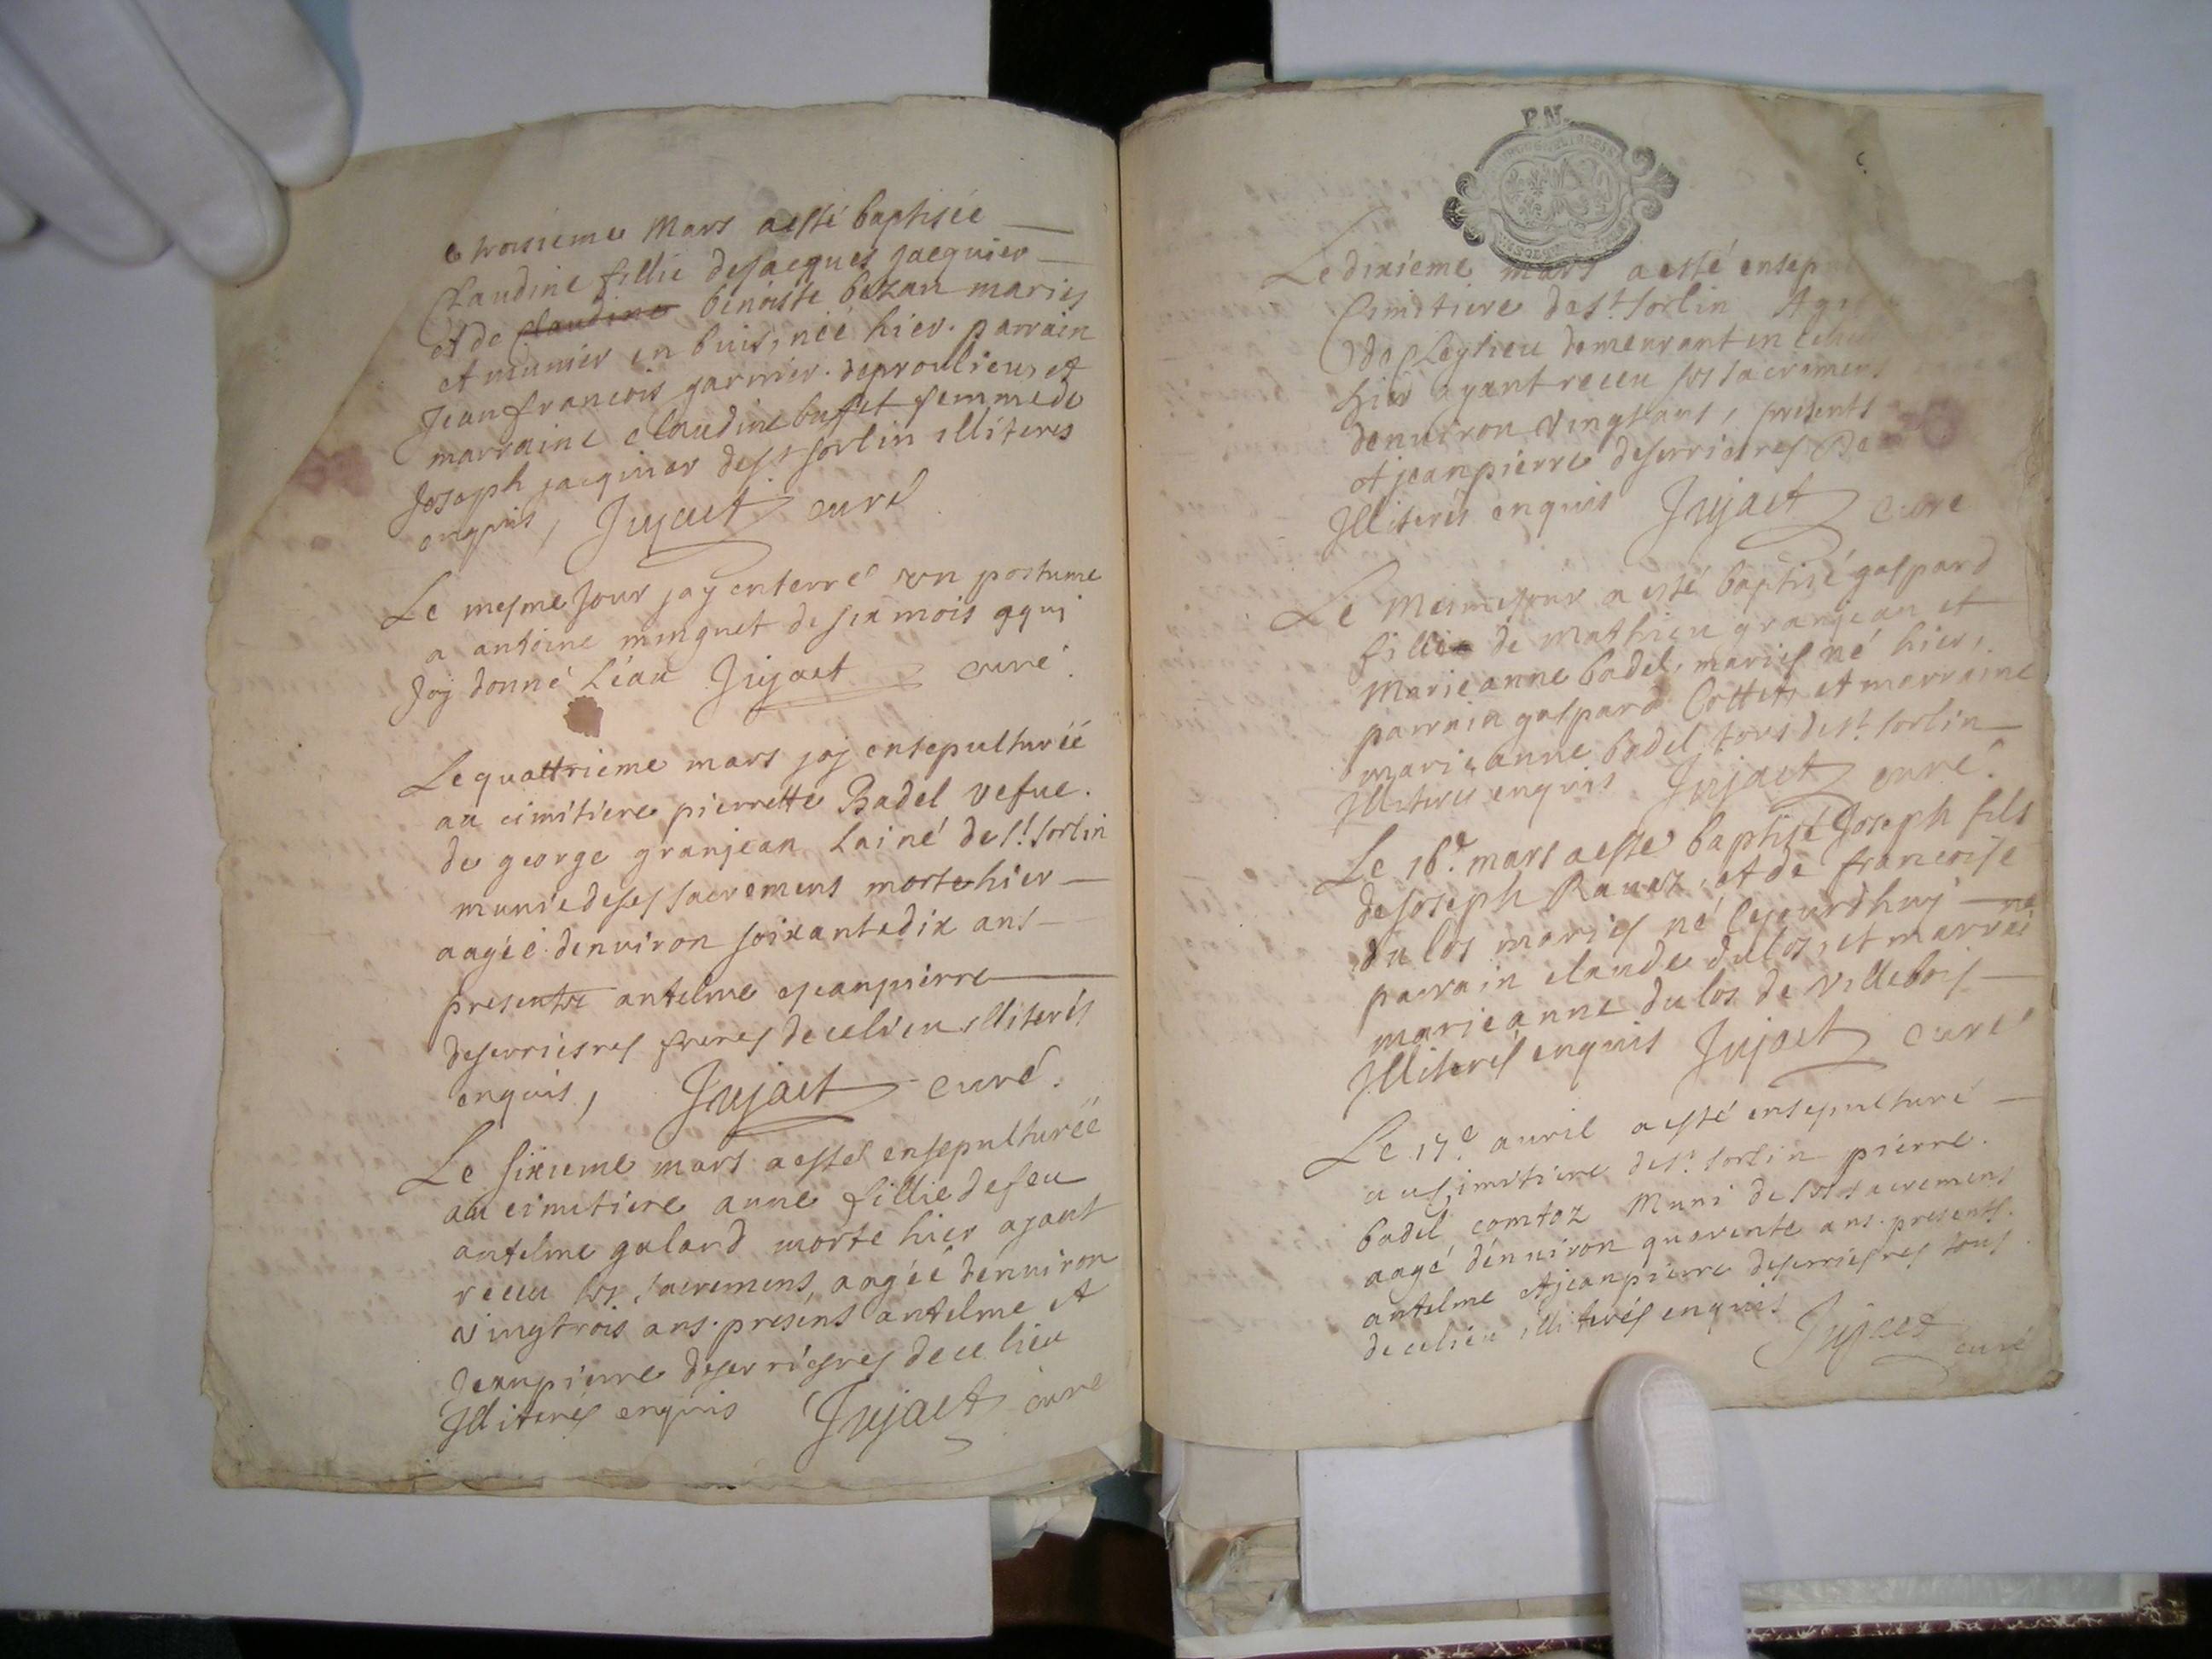 troisieme Mars a esté baptisée
Claudine fillie de jacques jacquier
et de Claudine benoiste bezan mariés
et munier en buis, néé hier. parrain
Jean francois garnier. de proulieu, et
marraine claudine buffet femme de
Joseph jacquier de st sorlin illiteres
enquis, Jujact curé
Le mesme Jour jay enterré un postume
a antoine minguet de six mois a qui
Jay donné Léau Jujact curé.
Le quattrieme mars jaj ensepulturéé
au cimitiere pierrette Badel vefue.
de george granjean Lainé de st. sorlin
munie de ses sacremens morte hier
aagéé denuiron soixante dix ans
presents antelme et jeanpierre
deserriesres freres de ce lieu illiterés
enquis, Jujact curé.
Le sixieme mars a esté ensepulturéé
au cimitiere anne fillie de feu
antelme galand morte hier ayant
receu ses sacremens, aagéé dénuiron
vingtrois ans. présens antelme et
Jeanpierre deserriesres de ce lieu
Jlliterés enquis Jujact curé
P.N.
Le dixieme mars a esté
Cimitiere de st. sorlin
de Leyrieu demeurant en
hier ayant receu ses sacremens
denuiron vingt ans, presents
et jeanpierre deserrieres de
Jlliterés enquis Jujact curé
Le mesme jour a esté baptisé gaspard
fillie de mathieu granjean et
Marieanne badel, mariés né hier,
parrain gaspard Cottet, et marraine
marieanne badel tous de st. sorlin
Jlliterés enquis Jujact curé.
Le 16e. mars a esté baptisé Joseph fils
de Joseph Rauaz, et de francoise
du los mariés né Cejourdhuy
parrain claude dulos, et marraine
marieanne du los de Villebois
Jlliterés enquis Jujact curé
Le 17e auril a esté ensepulturé
au cimitiere de st. sorlin pierre.
badel comtoz Muni de ses sacremens
aagé dénuiron quarente ans. presents.
antelme et jeanpierre deserriesres tous
de ce lieu illiterés enquis
Jujact curé